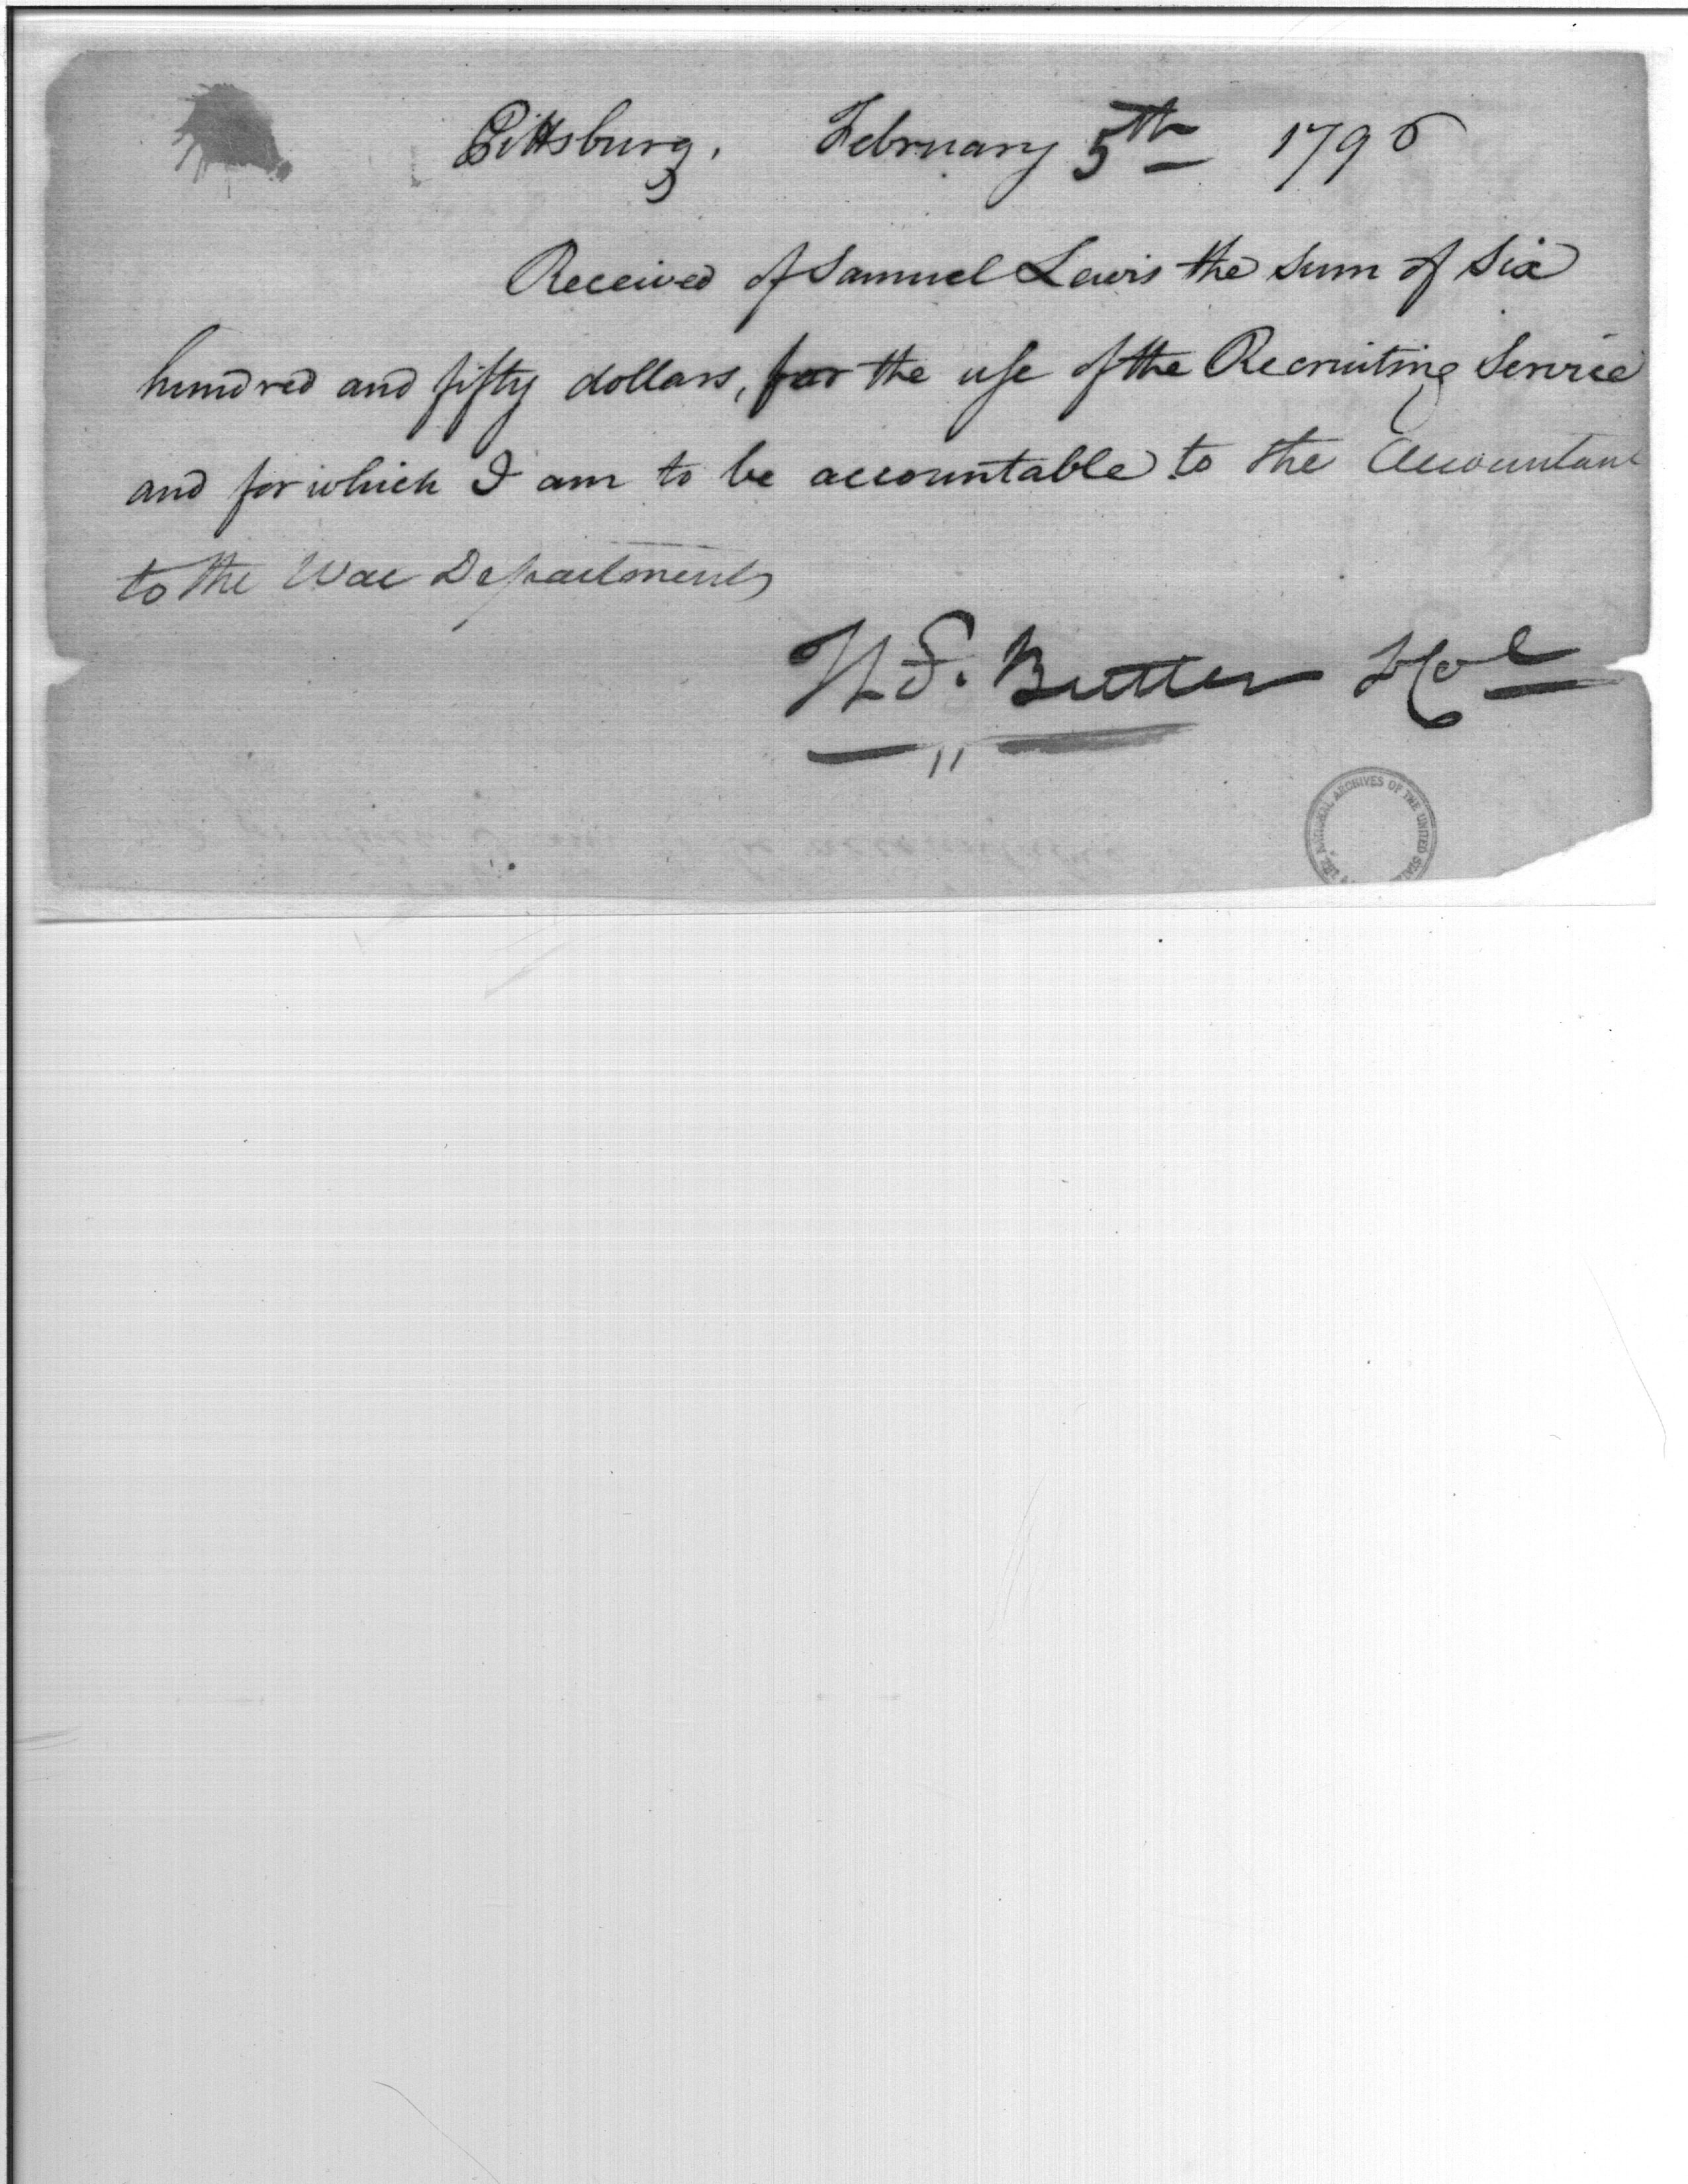 Pittsburg, February 5th 1796
Received of Samuel Lewis the Sum of Six
hundred and fifty dollars, for the use of the Recruiting Service
and for which I am to be accountable to the Accountant
to the War Department
Butler
NATIONAL ARCHIVES OF THE UNITED STAT